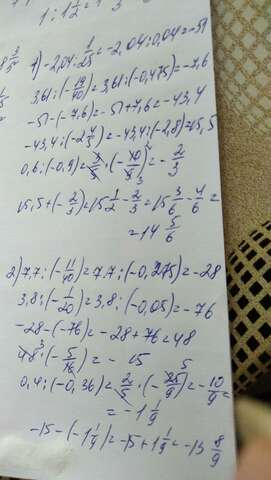 1 : 1 1/2 =
1) -2,04 : 1/25 = -2,04 : 0,04 = -51
3,61 : (-19/40) = 3,61 : (-0,475) = -7,6
-51 - (-7,6) = -51 + 7,6 = -43,4
-43,4 : (-2 4/5) = -43,4 : (-2,8) = 15,5
0,6 : (-0,9) = 3/5 · (-10/9) = -2/3
15,5 + (-2/3) = 15 1/2 - 2/3 = 15 3/6 - 4/6 =
= 14 5/6
2) 7,7 : (-11/40) = 7,7 : (-0,275) = -28
3,8 : (-1/20) = 3,8 : (-0,05) = -76
-28 - (-76) = -28 + 76 = 48
48 · (-5/16) = -15
0,4 : (-0,36) = 2/5 · (-25/9) = -10/9 =
= -1 1/9
-15 - (-1 1/9) = -15 + 1 1/9 = -13 8/9